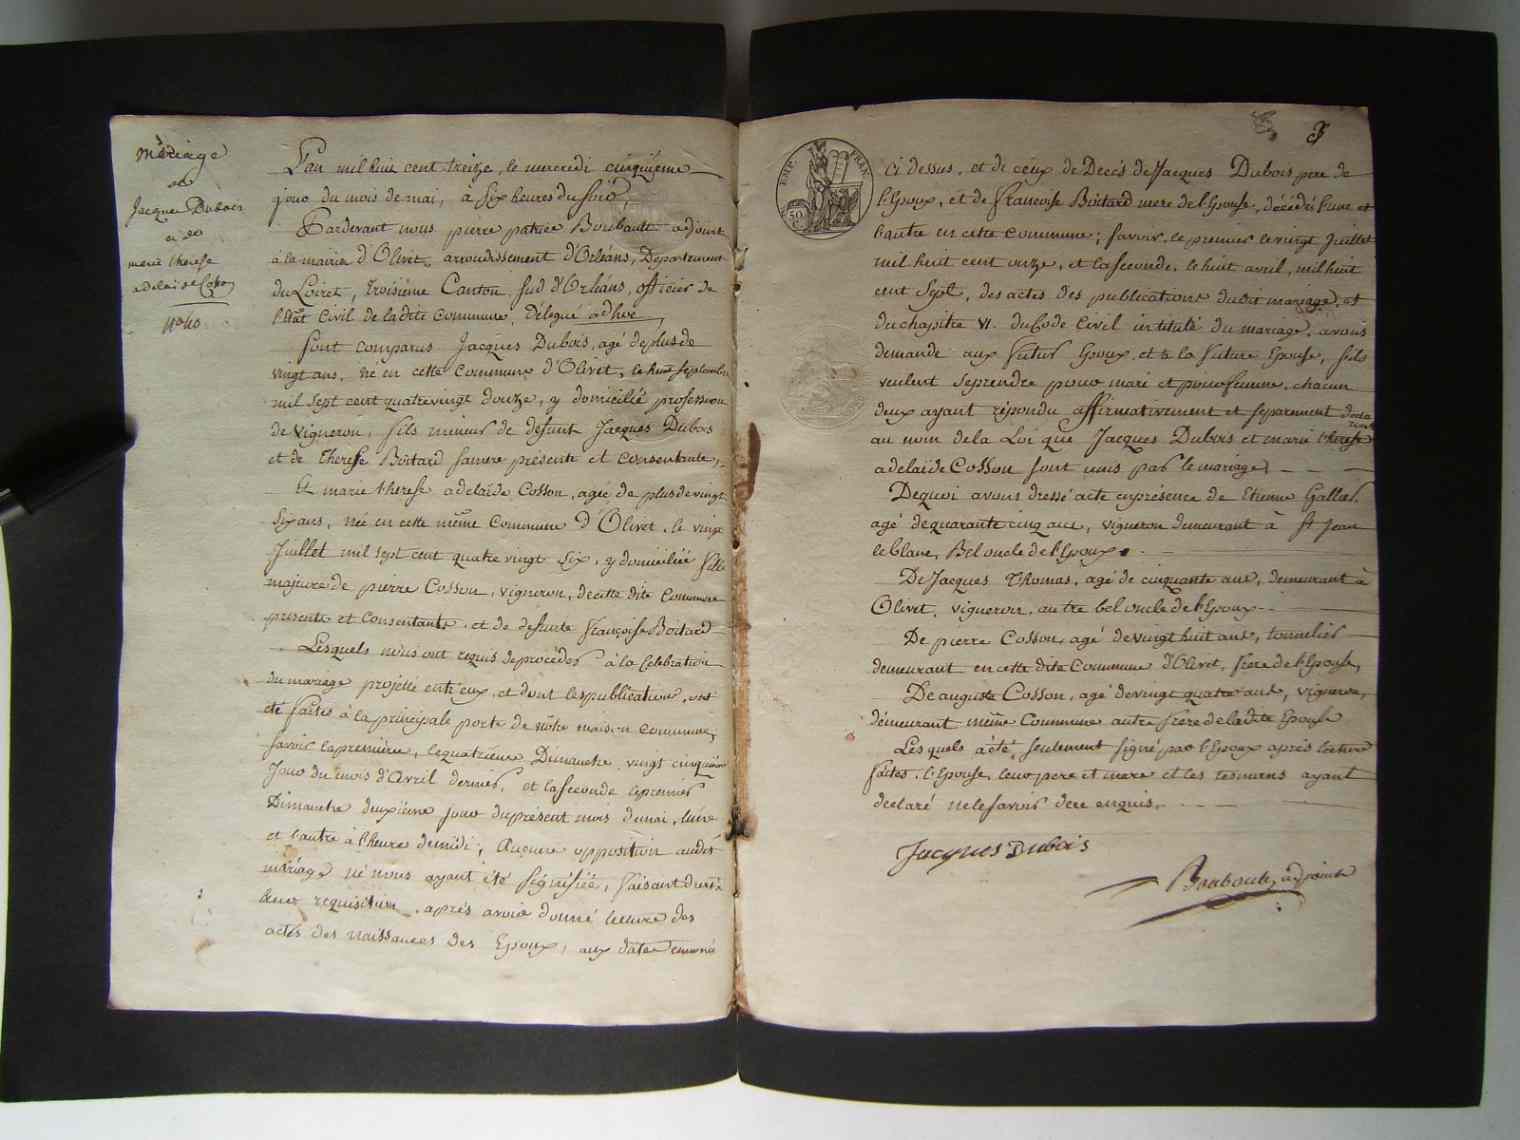 Mariage
de
Jacque Dubois
et de
marie therese
adelaide Cosson
n° 10
L'an mil huit cent treize, le mercredi cinquième
jour du mois de mai, à Six heures du soir,
Pardevant nous pierre patrice Boubault adjoint
à la mairie d'Olivet, arrondissement d'Orléans, Département
du Loiret, troisième Canton sud d'Orléans, officier de
l'Etat Civil de ladite Commune, délégué ad hoc,
sont comparus Jacques Dubois, agé de plus de
vingt ans, né en cette Commune d'Olivet, le huit septembre
mil sept cent quatrevingt douze, y domicilié profession
de vigneron, fils mineur de defunt Jacques Dubois
et de therese Boitard sa mere présente et consentante,
Et marie therese adelaïde Cosson, agée de plus de vingt
six ans, née en cette même Commune d'Olivet, le vingt
Juillet mil sept cent quatre vingt six, y domiciliée fille
majeure de pierre Cosson, vigneron, de cette dite Commune
présente et Consentante, et de defunte françoise Boitard
Lesquels nous ont requis de procéder à la Celebration
du mariage projetté entr'eux, et dont les publications ont
été faites à la principale porte de nôtre maison commune,
savoir la première, le quatrième Dimanche vingt cinquième
Jour du mois d'Avril dernier, et la seconde le premier
Dimanche deuxième jour du présent mois de mai, l'une
et l'autre à l'heure de midi; Aucune opposition audit
mariage ne nous ayant été signifiée, faisant droit à
leur requisition, après avoir donné lecture des
actes des naissances des Epoux, aux dates
3
EMP. FRAN.
50 C.
ci dessus, et de ceux de Decès de Jacques Dubois pere de
l'Epoux, et de Françoise Boitard mere de l'Epouse, décédés l'une et
l'autre en cette commune; savoir, le premier le vingt Juillet
mil huit cent onze, et la seconde, le huit avril, mil huit
cent sept, des actes des publications dudit mariage, et
du chapitre VI. du Code Civil intitulé du mariage, avons
demandé aux futur Epoux et à la future Epouse, s'ils
veulent se prendre pour mari et pour femme, chacun
deux ayant répondu affirmativement et séparement declarons
au nom de la Loi que Jacques Dubois et marie therese
adelaïde Cosson sont unis par le mariage,
De quoi avons dressé acte en présence de Etienne Gallet,
agé de quarante cinq ans, vigneron demeurant à St Jean
le blanc, Bel oncle de l'Epoux.
De Jacques Thomas, agé de cinquante ans, demeurant à
Olivet, vigneron, autre bel oncle de l'Epoux
De pierre Cosson, agé de vingt huit ans, tonnelier
demeurant en cette dite Commune d'Olivet, frere de l'Epouse,
De auguste Cosson, agé de vingt quatre ans, vigneron,
démeurant même Commune autre frere de ladite Epouse
Lesquels a été, seulement signé par l'Epoux après lecture
faites, l'Epouse, leur pere et mere et les temoins ayant
declaré ne le savoir de ce enquis.
Jacques Dubois
Boubault, adjoint